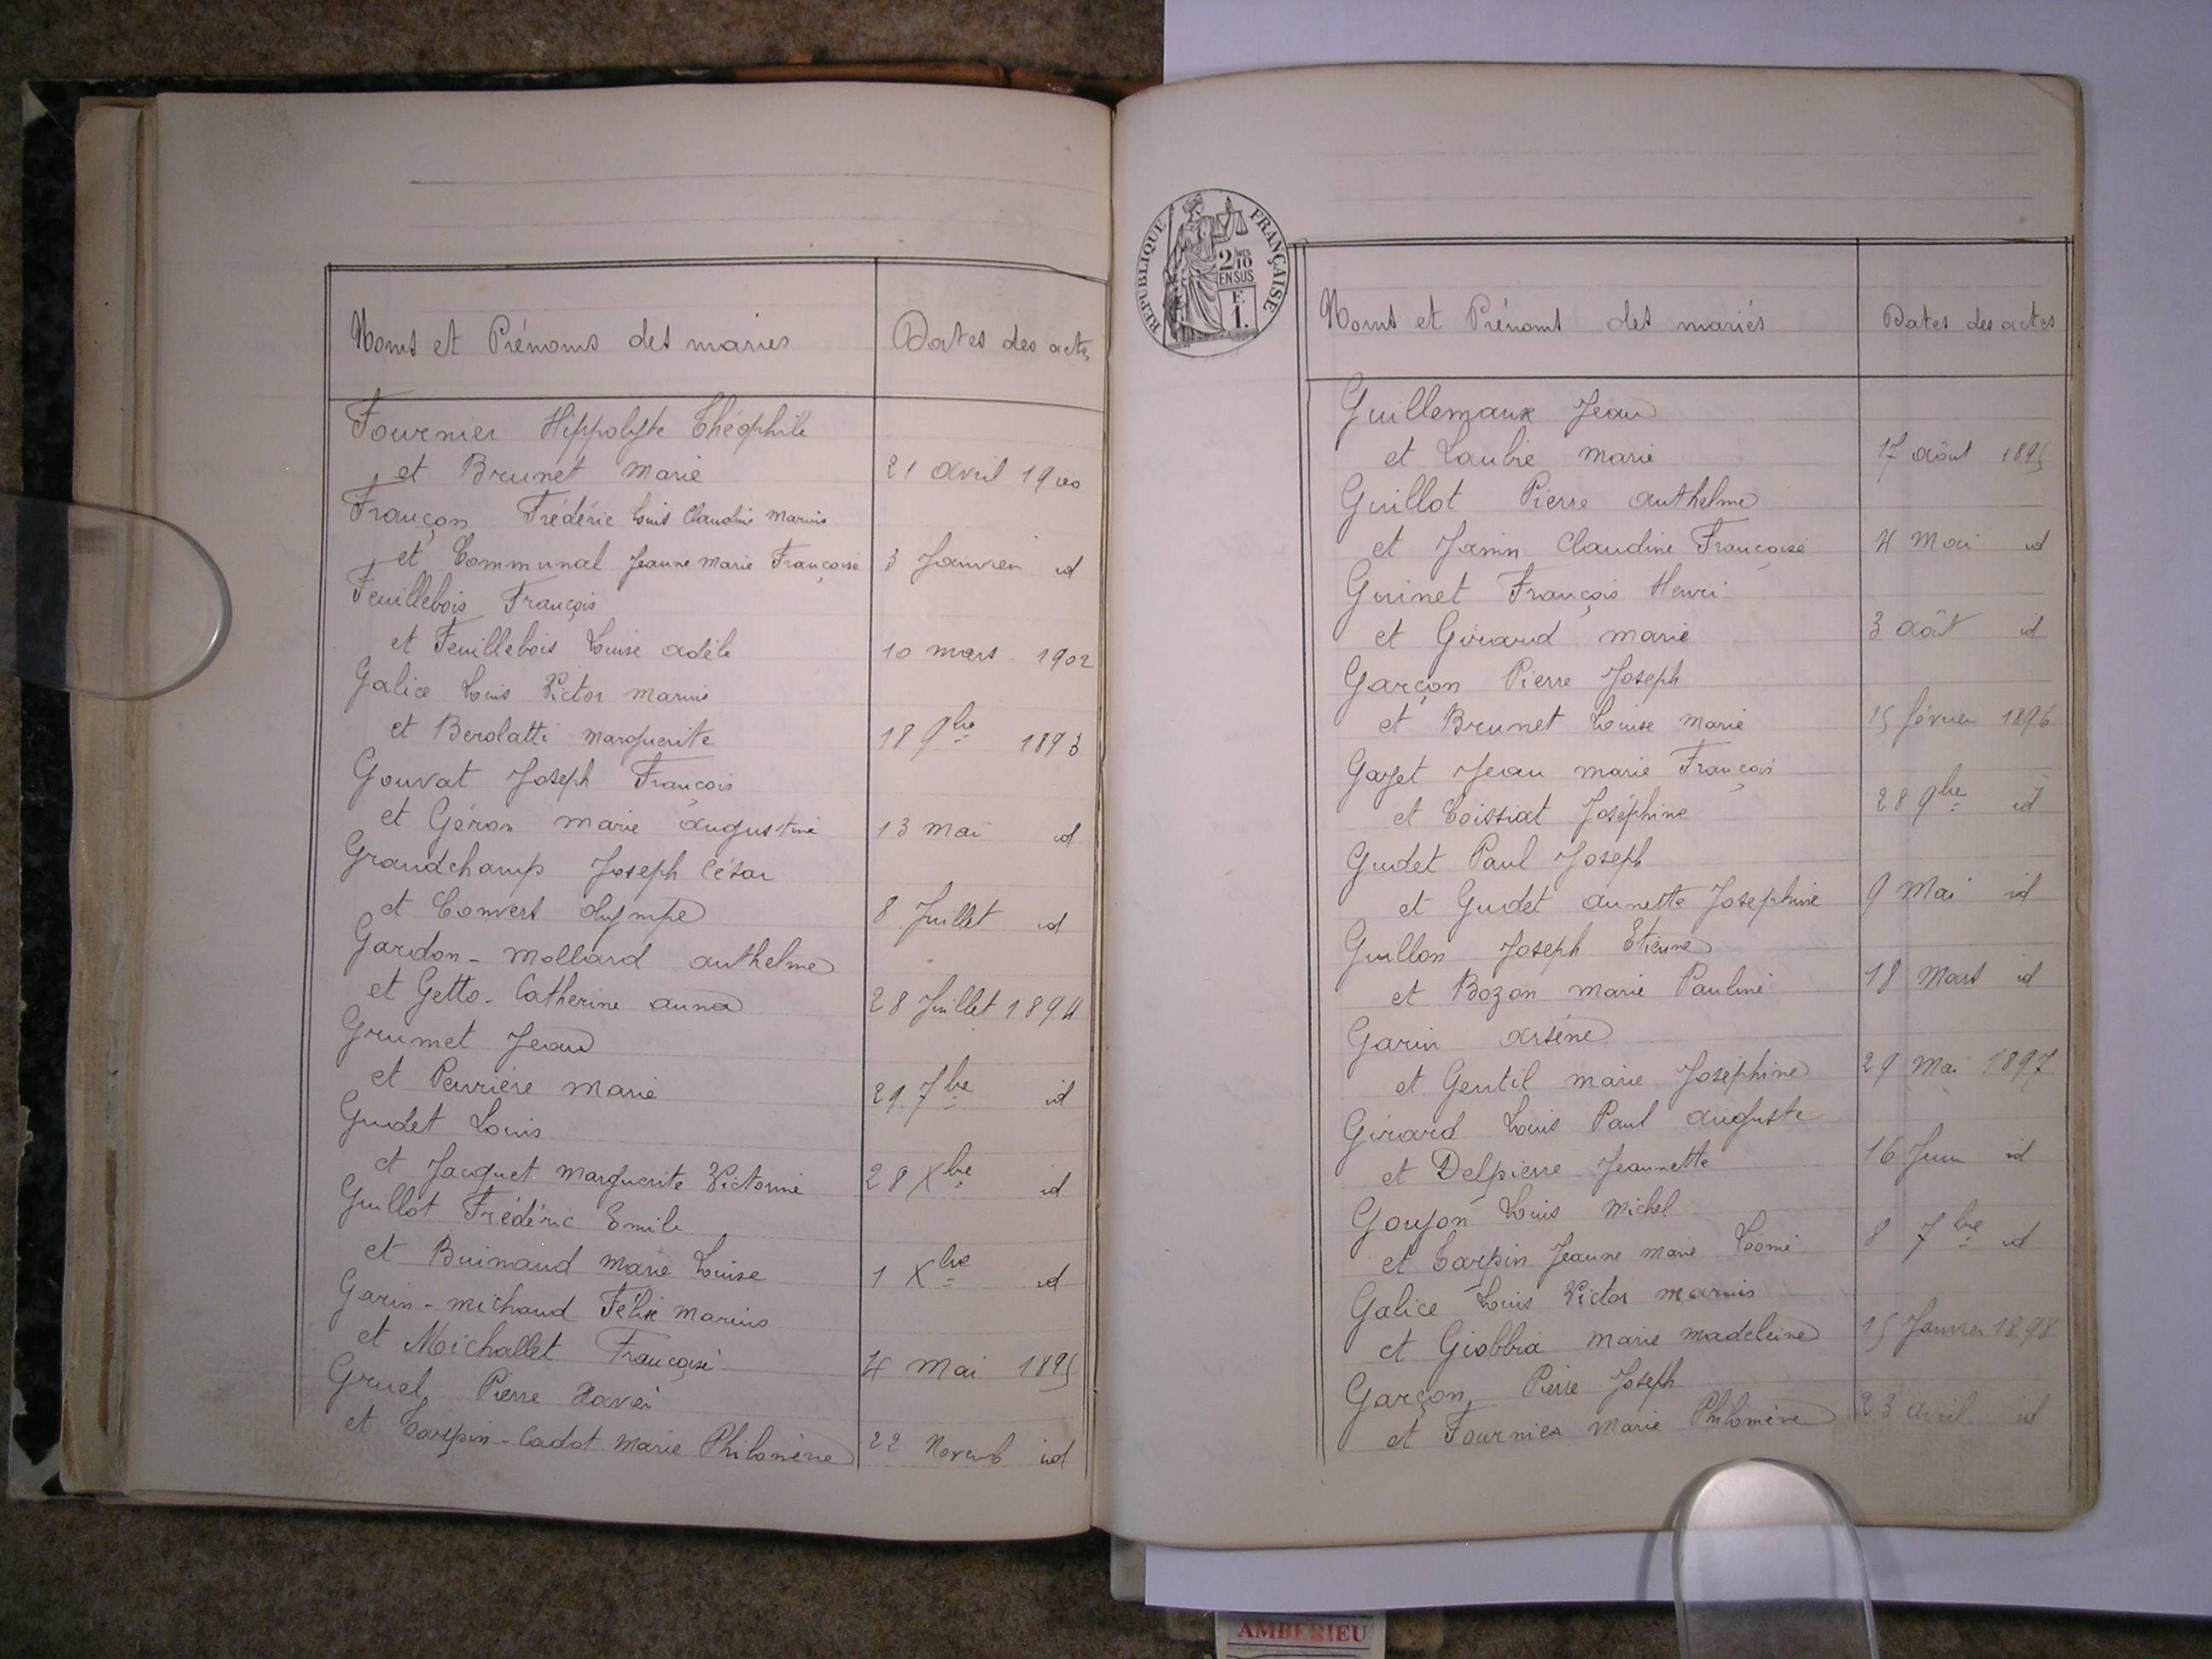 Noms et Prénoms des mariés
Dates des actes
Fournier Hippolyte Théophile
et Brunet Marie 21 avril 1900
Françon Frédéric Louis Claudius Marius
et Communal Jeanne Marie Françoise 3 Janvier id
Feuillebois François
et Feuillebois Louise adèle 10 mars 1902
Galice Louis Victor marius
et Berolatti marguerite 18 9bre 1893
Gouvat Joseph François
et Géron marie augustine 13 mai id
Grandchamp Joseph César
et Convert olympe 8 Juillet id
Gardon - Molliard anthelme
et Getto - Catherine anna 28 Juillet 1894
Grumet Jean
et Perrière Marie 21 7bre id
Gudet Louis
et Jacquet marguerite Victorine 28 Xbre id
Guillot Frédéric Emile
et Buinaud Marie Louise 1 Xbre id
Garin - michaud Félix marius
et Michallet Françoise 4 Mai 1895
Gruel, Pierre Xavier
et Carpin - Cadot Marie Philomène 22 Novemb id
REPUBLIQUE FRANÇAISE
2/10 EN SUS
F.
1.
Noms et Prénoms des mariés
Dates des actes
Guillemaux Jean
et Laubie marie 17 août 1895
Guillot Pierre anthelme
et Janin Claudine Françoise 4 Mai id
Guinet François Henri
et Girard marie 3 août id
Garçon Pierre Joseph
et Brunet Louise Marie 15 février 1896
Gayet Jean marie François
et Coissiat Joséphine 28 9bre id
Gudet Paul Joseph
et Gudet annette Josephine 9 Mai id
Guillon Joseph Etienne
et Bozon marie Pauline 18 Mars id
Garin arsène
et Gentil marie Joséphine 29 Mai 1897
Girard Louis Paul auguste
et Delpierre Jeannette 16 Juin id
Goujon Louis Michel
et Carpin Jeanne marie Léonie 8 7bre id
Galice Louis Victor marius
et Giobbia marie madeleine 15 Janvier 1898
Garçon, Pierre Joseph
et Fournier Marie Philomène 23 avril id
AMBERIEU